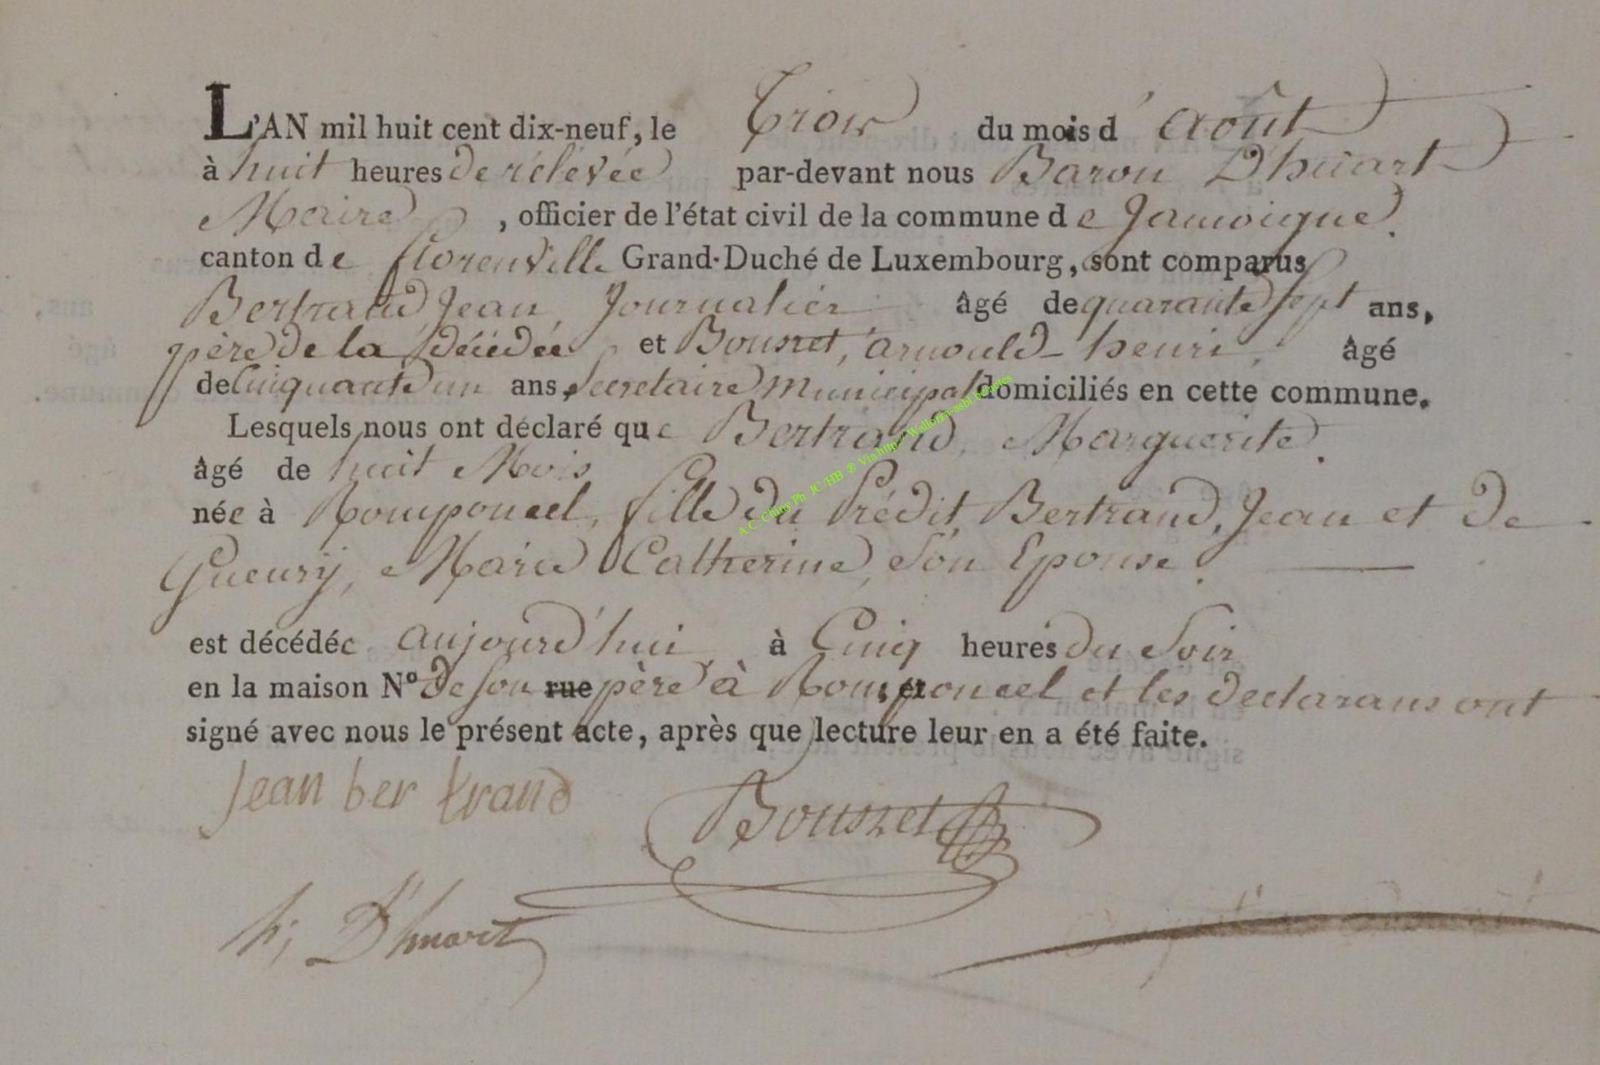 L'AN mil huit cent dix-neuf, le Trois du mois d'Août
à huit heures de rélévée par-devant nous Baron D'huart
Maire, officier de l'état civil de la commune de Jamoigne.
canton de florenville Grand-Duché de Luxembourg, sont comparus
Bertrand Jean, Journalier âgé de quarante sept ans,
père de la décédée et Bousret, arnould henri, âgé
de Cinquante un ans, Secretaire Municipal domiciliés en cette commune.
Lesquels nous ont déclaré que Bertrand, Marguerite.
âgé de huit Mois
née à Romponcel, fille du Prédit, Bertrand, Jean et de
Gueury, Marie Catherine, Son Epouse.
est décédée aujourd'hui à Cinq heures du Soir
en la maison N° de son rue père à Romponcel et les declarans ont
signé avec nous le présent acte, après que lecture leur en a été faite.
Jean ber trand
Bousret
h; D'huart
A.C. Chiny Ph JC/HB ® Via http:/ Wallorr-asbl.net/tes